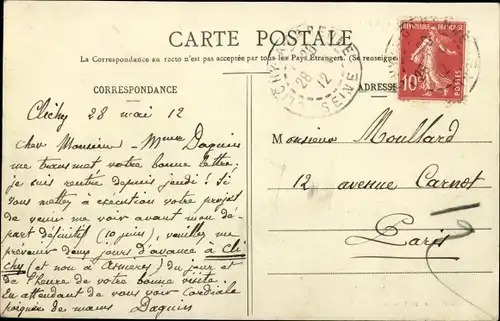 CARTE POSTALE
La Correspondance au recto n'est pas acceptée par tous les Pays Etrangers. (Se renseigner
CORRESPONDANCE
ADRESSE
REPUBLIQUE FRANCAISE
10c
POSTES
CLICHY
SEINE
28
12
Clichy 28 mai 12
Cher Monsieur - Mme Daguin
me transmet votre bonne lettre.
je suis rentré depuis jeudi! Si
vous mettez à exécution votre projet
de venir me voir avant mon dé-
part définitif (10 juin), veuillez me
prévenir deux jours d'avance à Cli
chy (et non à Asnières) du jour et
de l'heure de votre bonne visite.
En attendant de vous voir cordiale
poignée de mains Daguin
Monsieur Moullard
12 avenue Carnot
Paris